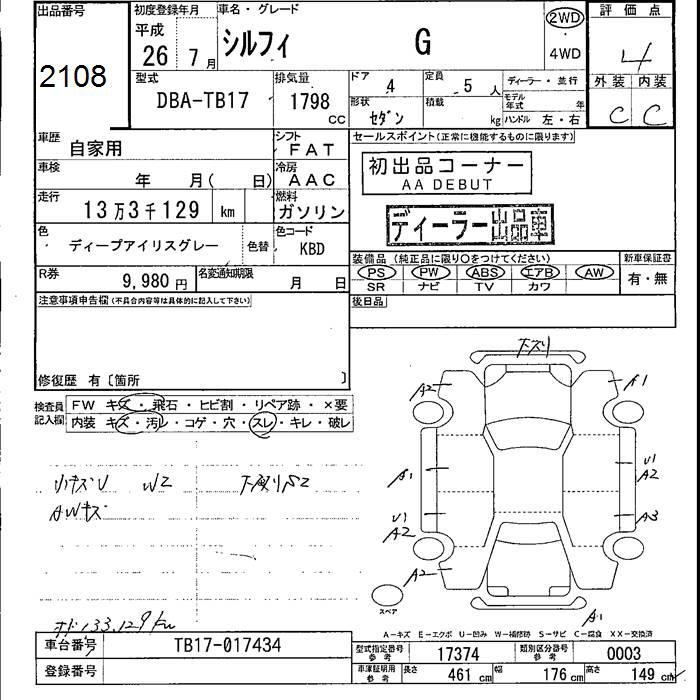 出品番号
2108
初度登録年月
平成
26年 7月
車名・グレード
シルフィ G
2WD
4WD
評価点
4
外装 内装
C C
型式
DBA-TB17
排気量
1798 CC
ドア 4
定員 5人
ディーラー・並行
モデル年式 年
形状 セダン
積載 kg
ハンドル 左・右
車歴 自家用
シフト FAT
車検 年 月( 日)
冷房 AAC
走行 13万3千129 km
燃料 ガソリン
色 ディープアイリスグレー
色替
色コード KBD
R券 9,980円
名変通知期限 月 日
セールスポイント(正常に機能するものに限ります)
初出品コーナー
AA DEBUT
ディーラー出品車
装備品 (純正品に限り○をつけてください)
新車保証書
PS PW ABS エアB AW
SR ナビ TV カワ
有・無
後日品
注意事項申告欄(不具合内容等は具体的に記入して下さい)
修復歴 有〔箇所 〕
検査員記入欄
FW キズ・飛石・ヒビ割・リペア跡・×要
内装 キズ・汚レ・コゲ・穴・スレ・キレ・破レ
小キズU W2
下廻りS2
AWキズ
下スリ
A2
A1
A1
U1
A2
U1
A2
A3
A2
A1
スペア
ホド133,129km
A-キズ E-エクボ U-凹み W-補修跡 S-サビ C-腐食 XX-交換済
車台番号 TB17-017434
登録番号
型式指定番号 参考 17374
類別区分番号 参考 0003
車庫証明用 参考 長さ 461cm 幅 176cm 高さ 149cm